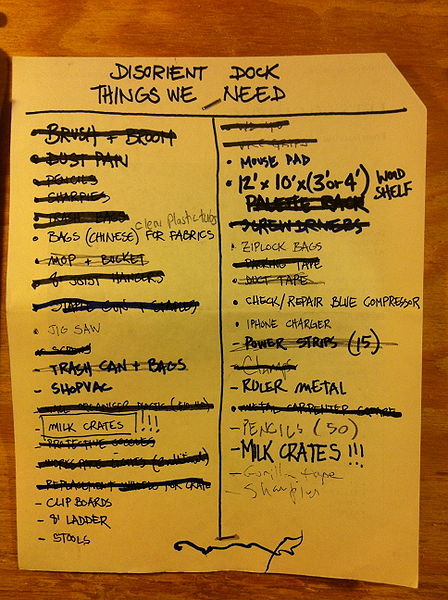 DISORIENT DOCK
THINGS WE NEED
BRUSH + BROOM
DUST PAN
PENCILS
SHARPIES
TRASH BAGS
clear plastic tubs
BAGS (CHINESE) FOR FABRICS
MOP + BUCKET
JOIST HANGERS
STAPLE GUN + STAPLES
JIG SAW
SCREWS
TRASH CAN + BAGS
SHOPVAC
MILK CRATES !!!
PROTECTIVE GOGGLES
REPLACEMENT FOR CRATE
CLIP BOARDS
8' LADDER
STOOLS
VICE GRIPS
MOUSE PAD
12' x 10' x (3' or 4') WOOD SHELF
PALETTE RACK
SCREWDRIVERS
ZIPLOCK BAGS
PACKING TAPE
DUCT TAPE
CHECK/REPAIR BLUE COMPRESSOR
IPHONE CHARGER
POWER STRIPS (15)
Clamps
RULER METAL
METAL CARPENTER SQUARE
PENCILS (50)
MILK CRATES !!!
Gorilla tape
Sharpies